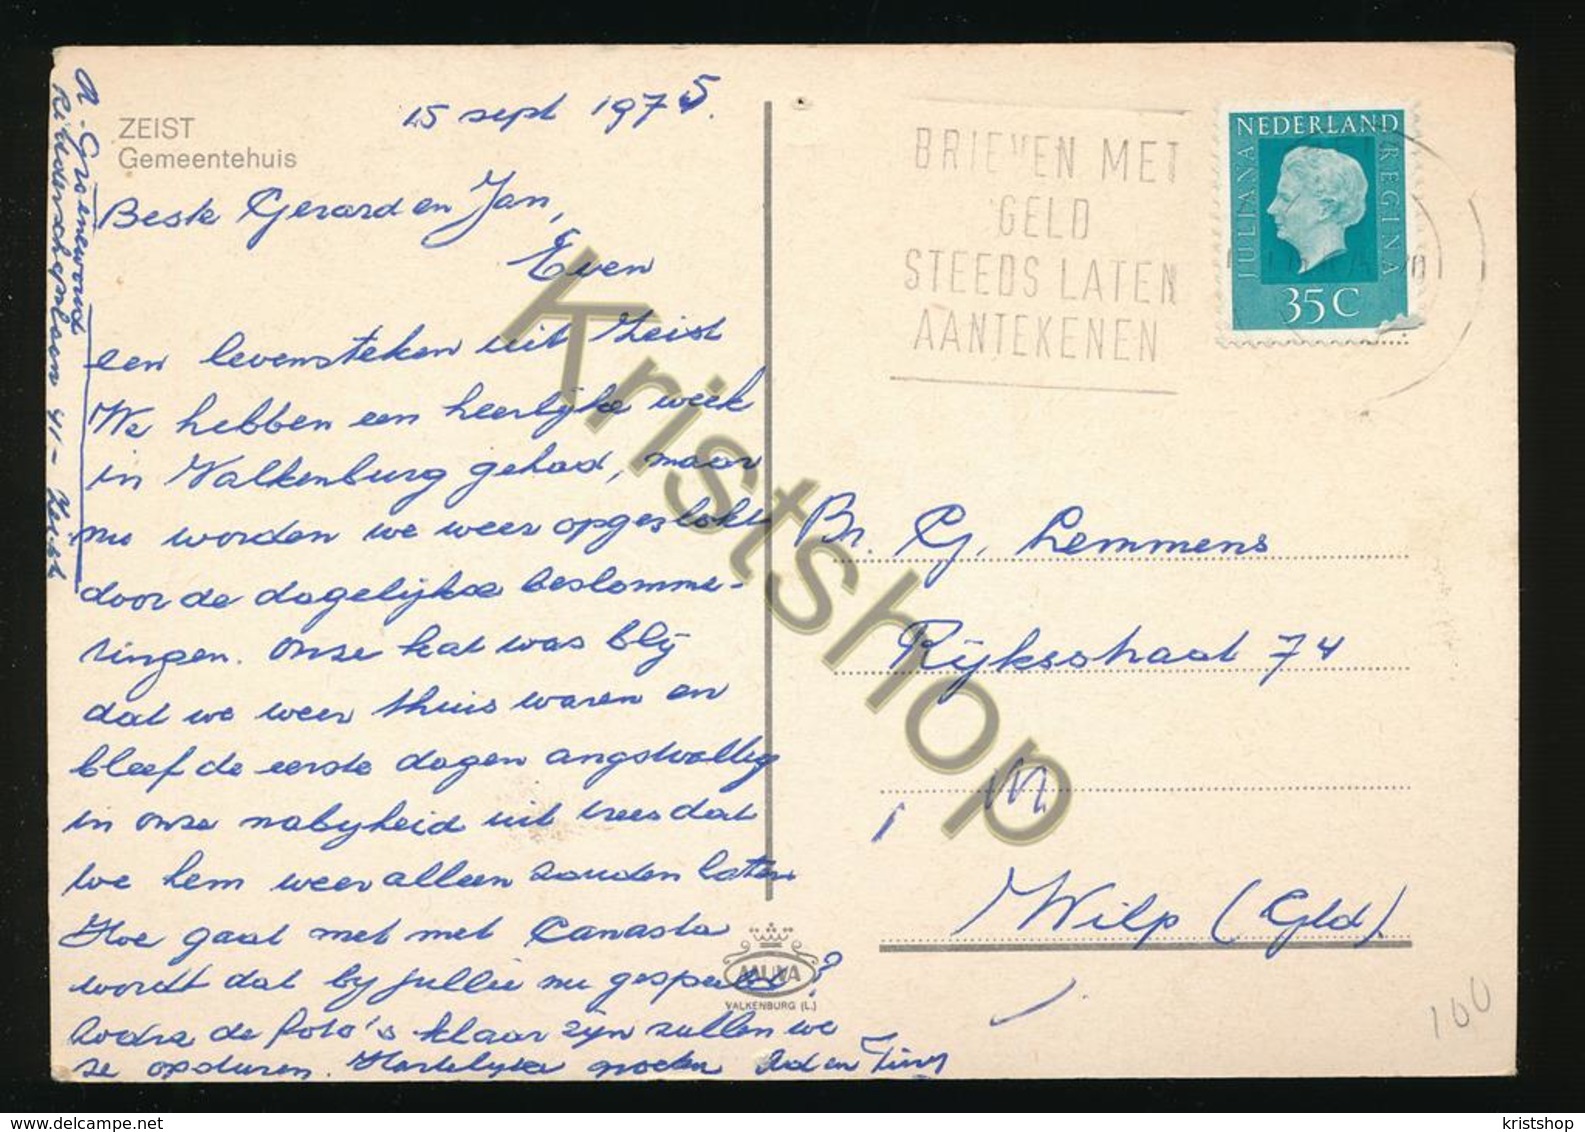 ZEIST
Gemeentehuis
15 sept 1975.
Beste Gerard en Jan,
Even
een levensteken uit Zeist
We hebben een heerlijke week
in Valkenburg gehad, maar
nu worden we weer opgeslokt
door de dagelijkse beslomme-
ringen. Onze kat was blij
dat we weer thuis waren en
bleef de eerste dagen angstvallig
in onze nabijheid uit vrees dat
we hem weer alleen zouden laten
Hoe gaat met met Canasta
wordt dat by jullie nu gespeeld?
Zodra de foto's klaar zijn zullen we
ze opsturen. Hartelijke groeten Ad en Tiny
A. Groenewoud
Ridderschapslaan 41 - Zeist
BRIEVEN MET
GELD
STEEDS LATEN
AANTEKENEN
NEDERLAND
JULIANA
REGINA
35 C
Br. G. Lemmens
Rijksstraat 74
in
Wilp (Gld)
MUVA
VALKENBURG (L.)
100
Kristshop
delcampe.net
kristshop